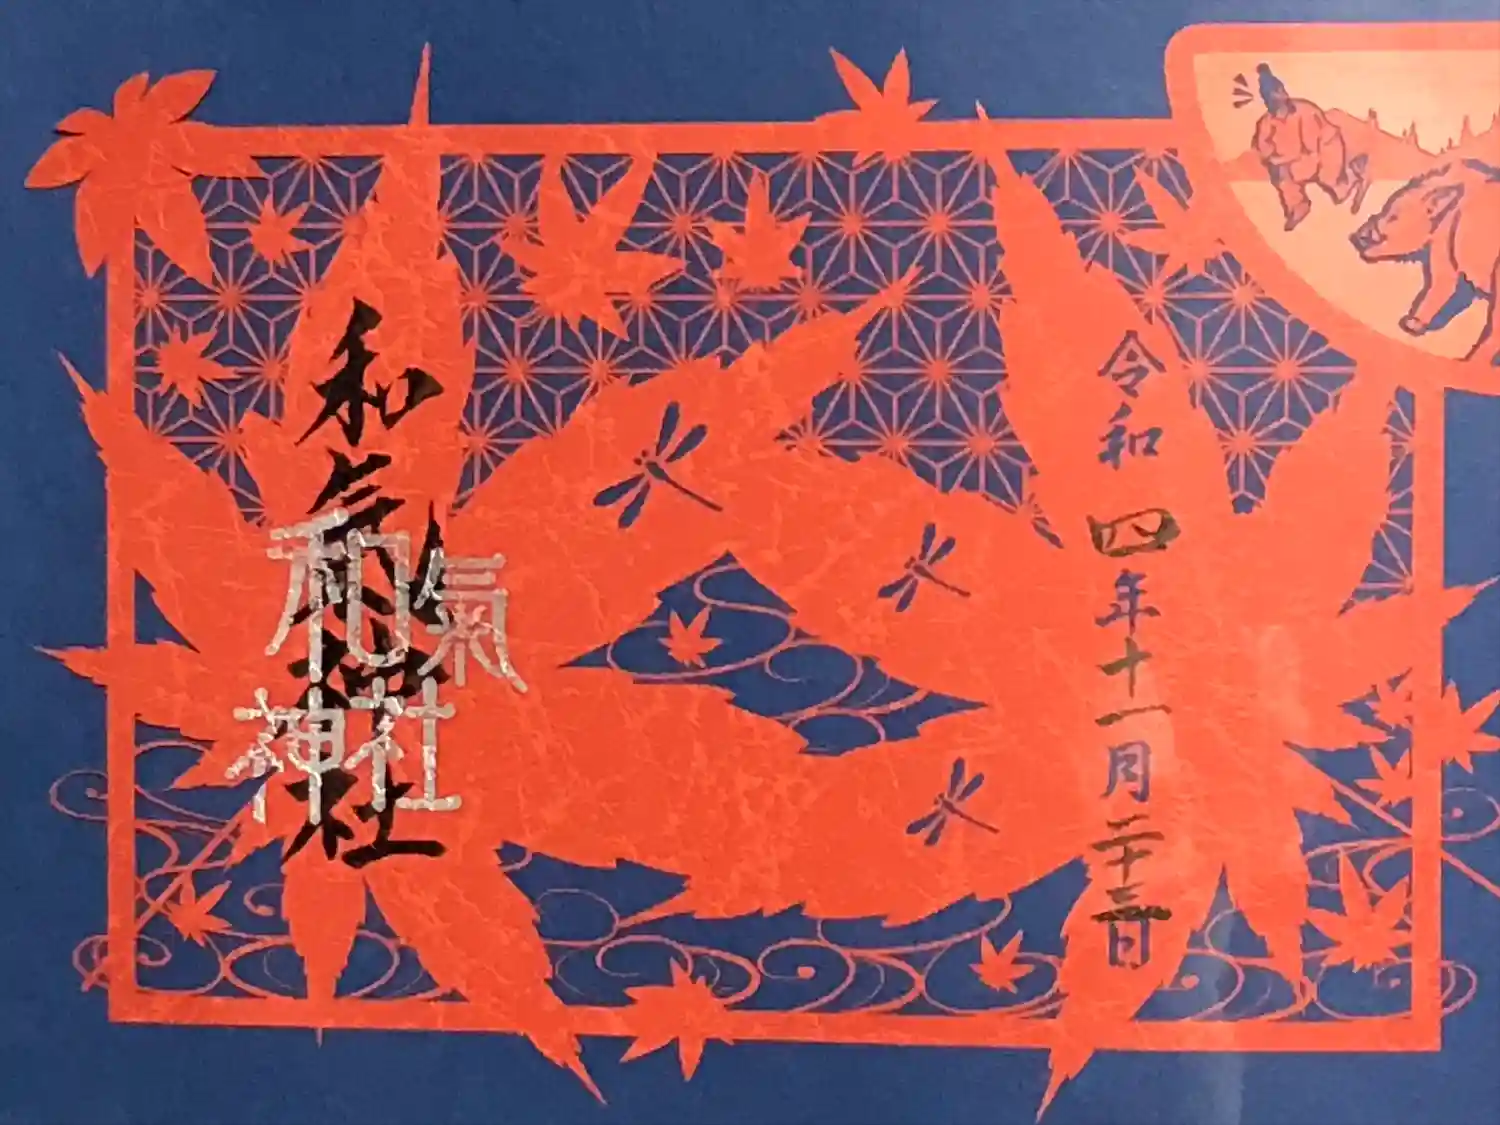 令和四年十一月二十三日
和氣神社
和氣
神社